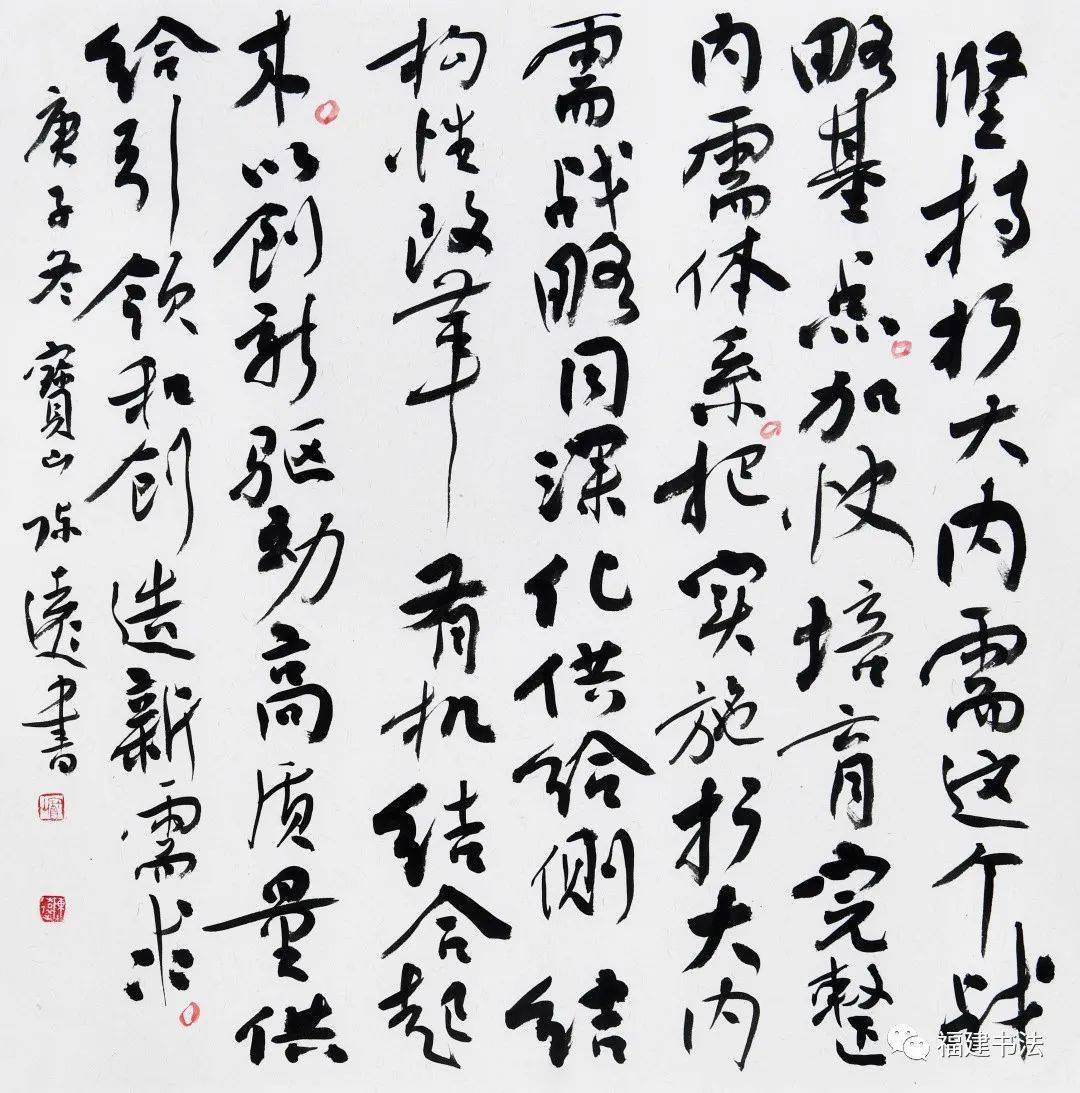 坚持扩大内需这个战
略基点。加快培育完整
内需体系。把实施扩大内
需战略同深化供给侧结
构性改革有机结合起
来。以創新驱动高质量供
给引领和创造新需求。
庚子冬寶山陈遠书
福建书法